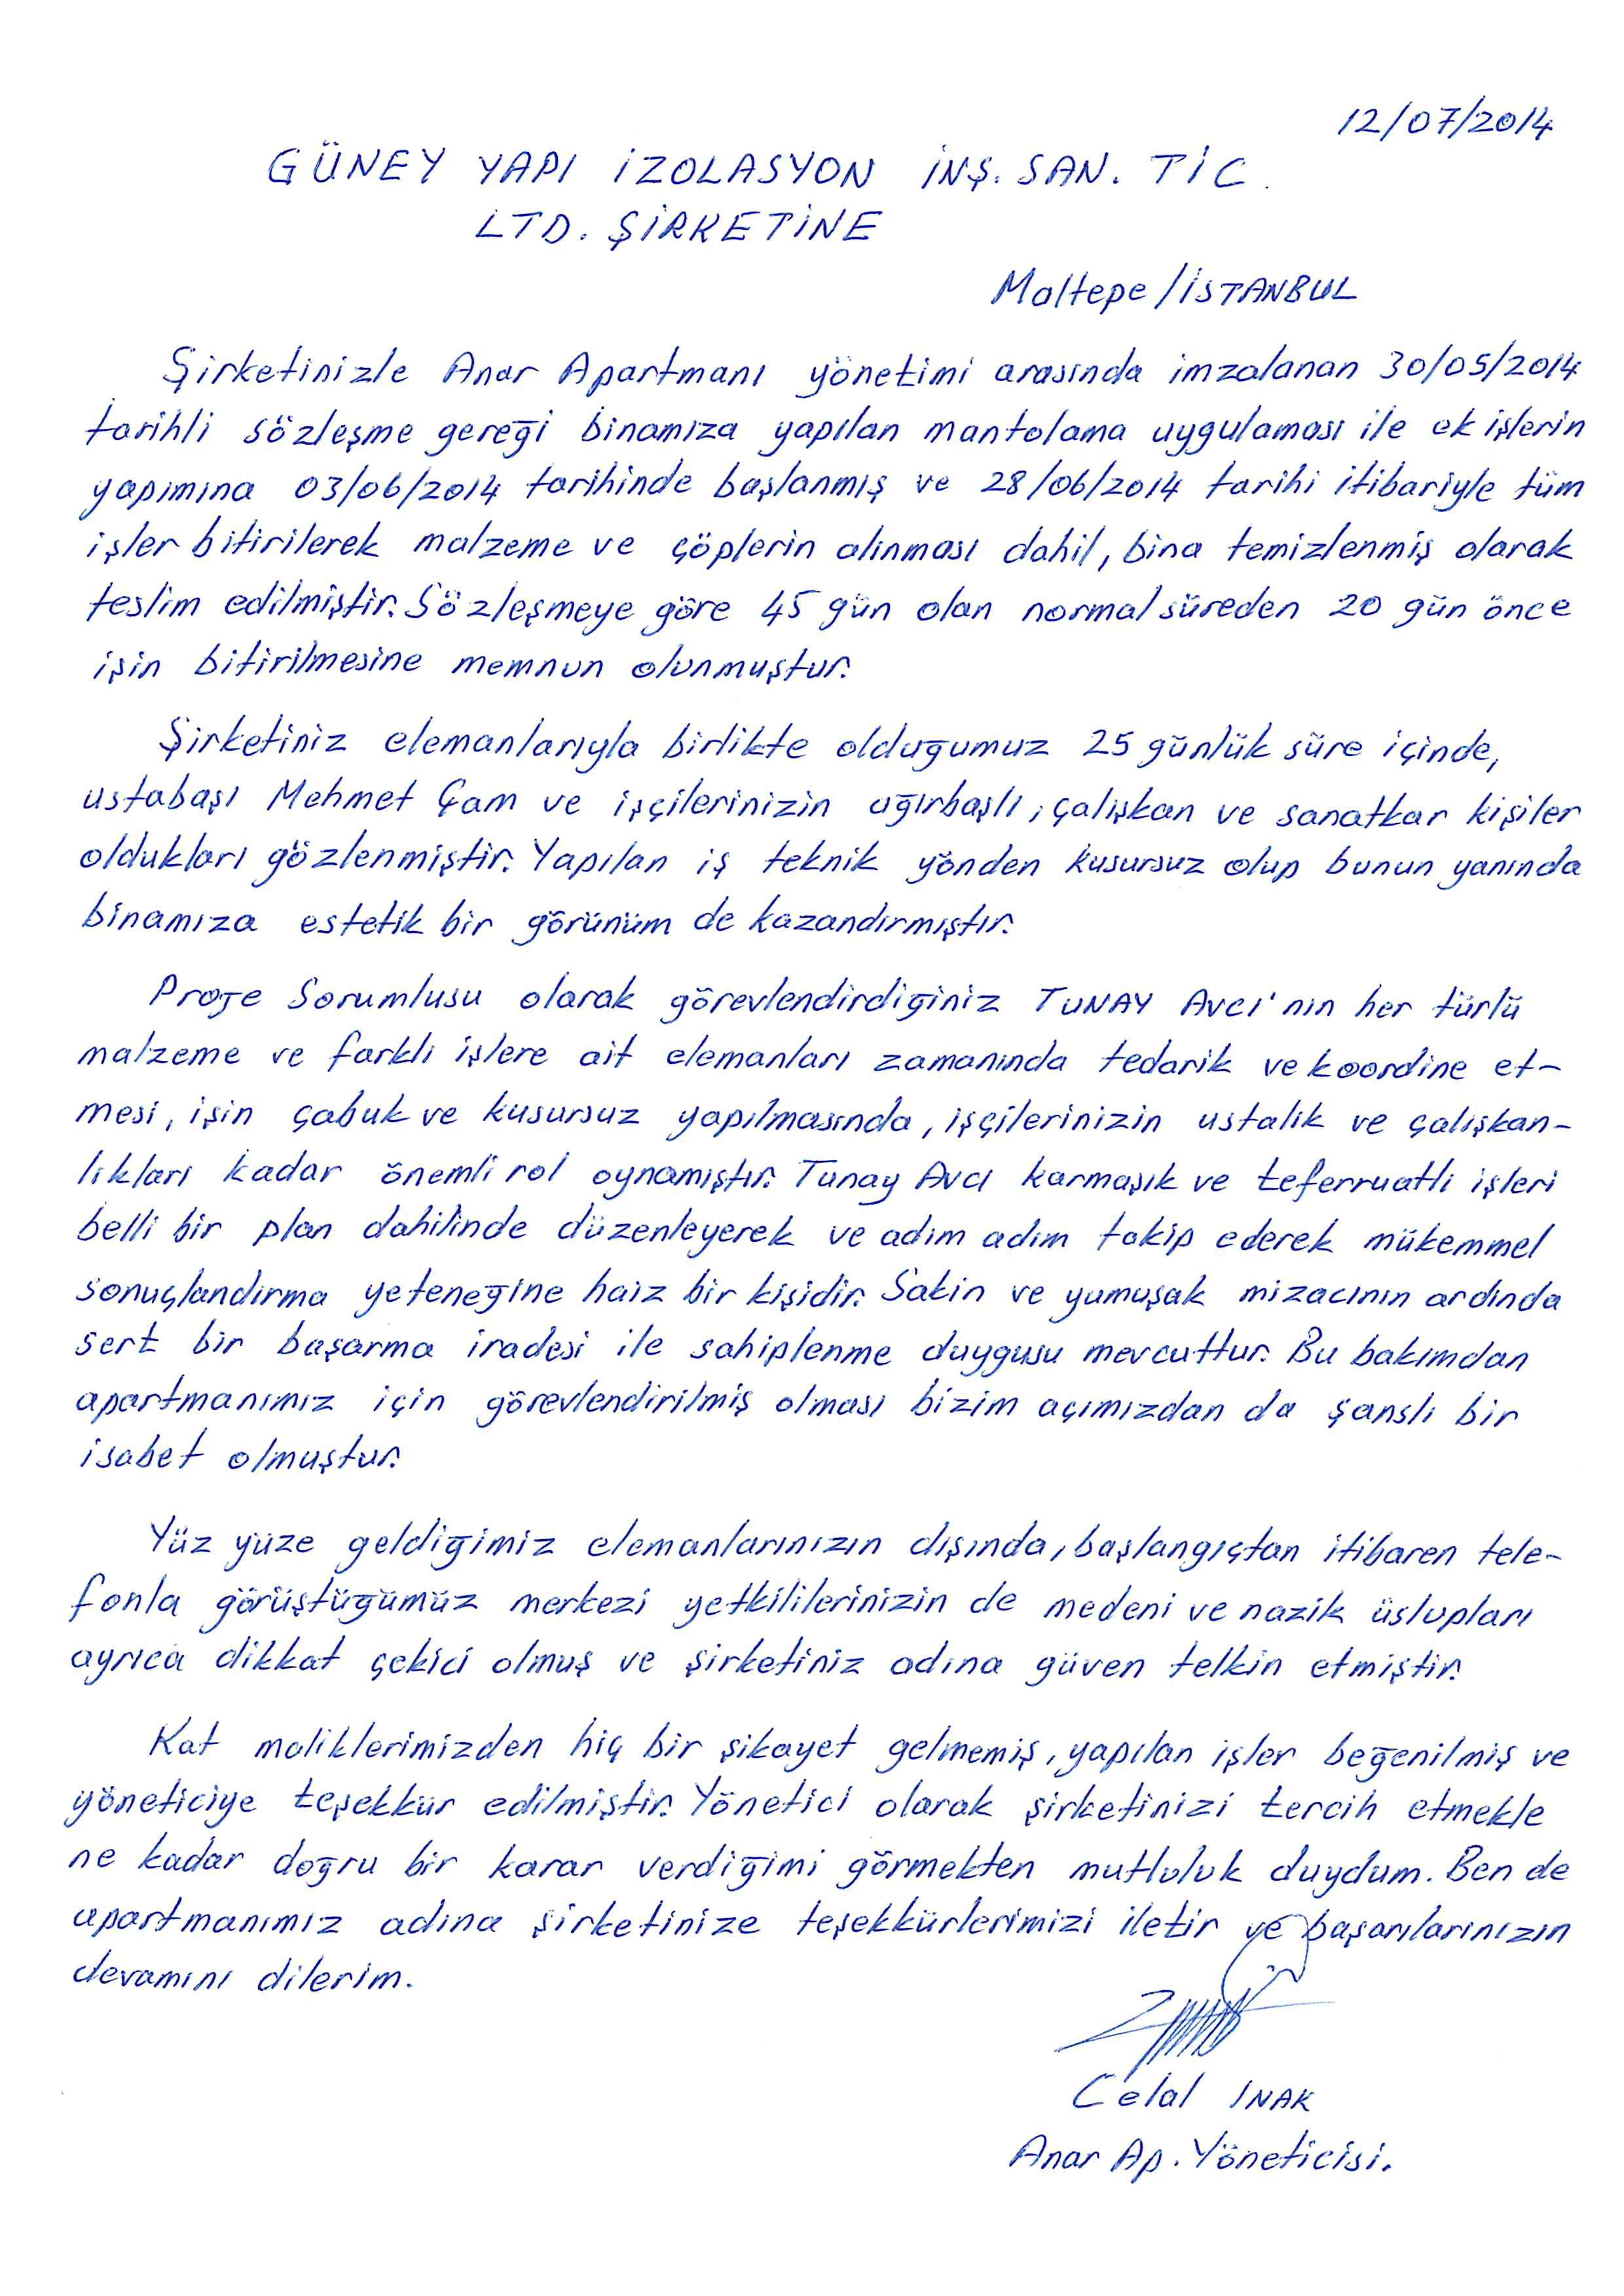 12/07/2014
GÜNEY YAPI İZOLASYON İNŞ. SAN. TİC.
LTD. ŞİRKETİNE
Maltepe /İSTANBUL
Şirketinizle Anar Apartmanı yönetimi arasında imzalanan 30/05/2014
tarihli sözleşme gereği binamıza yapılan mantolama uygulaması ile ek işlerin
yapımına 03/06/2014 tarihinde başlanmış ve 28/06/2014 tarihi itibariyle tüm
işler bitirilerek malzeme ve çöplerin alınması dahil, bina temizlenmiş olarak
teslim edilmiştir. Sözleşmeye göre 45 gün olan normal süreden 20 gün önce
işin bitirilmesine memnun olunmuştur.
Şirketiniz elemanlarıyla birlikte olduğumuz 25 günlük süre içinde,
ustabaşı Mehmet Çam ve işçilerinizin ağırbaşlı, çalışkan ve sanatkar kişiler
oldukları gözlenmiştir. Yapılan iş teknik yönden kusursuz olup bunun yanında
binamıza estetik bir görünüm de kazandırmıştır.
Proje Sorumlusu olarak görevlendirdiğiniz TUNAY AVCI'nın her türlü
malzeme ve farklı işlere ait elemanları zamanında tedarik ve koordine et-
mesi, işin çabuk ve kusursuz yapılmasında, işçilerinizin ustalık ve çalışkan-
lıkları kadar önemli rol oynamıştır. Tunay Avcı karmaşık ve teferruatlı işleri
belli bir plan dahilinde düzenleyerek ve adım adım takip ederek mükemmel
sonuçlandırma yeteneğine haiz bir kişidir. Sakin ve yumuşak mizacının ardında
sert bir başarma iradesi ile sahiplenme duygusu mevcuttur. Bu bakımdan
apartmanımız için görevlendirilmiş olması bizim açımızdan da şanslı bir
isabet olmuştur.
Yüz yüze geldiğimiz elemanlarınızın dışında, başlangıçtan itibaren tele-
fonla görüştüğümüz merkezi yetkililerinizin de medeni ve nazik üslupları
ayrıca dikkat çekici olmuş ve şirketiniz adına güven telkin etmiştir.
Kat maliklerimizden hiç bir şikayet gelmemiş, yapılan işler beğenilmiş ve
yöneticiye teşekkür edilmiştir. Yönetici olarak şirketinizi tercih etmekle
ne kadar doğru bir karar verdiğimi görmekten mutluluk duydum. Ben de
apartmanımız adına şirketinize teşekkürlerimizi iletir ve başarılarınızın
devamını dilerim.
Celal INAK
Anar Ap. Yöneticisi.